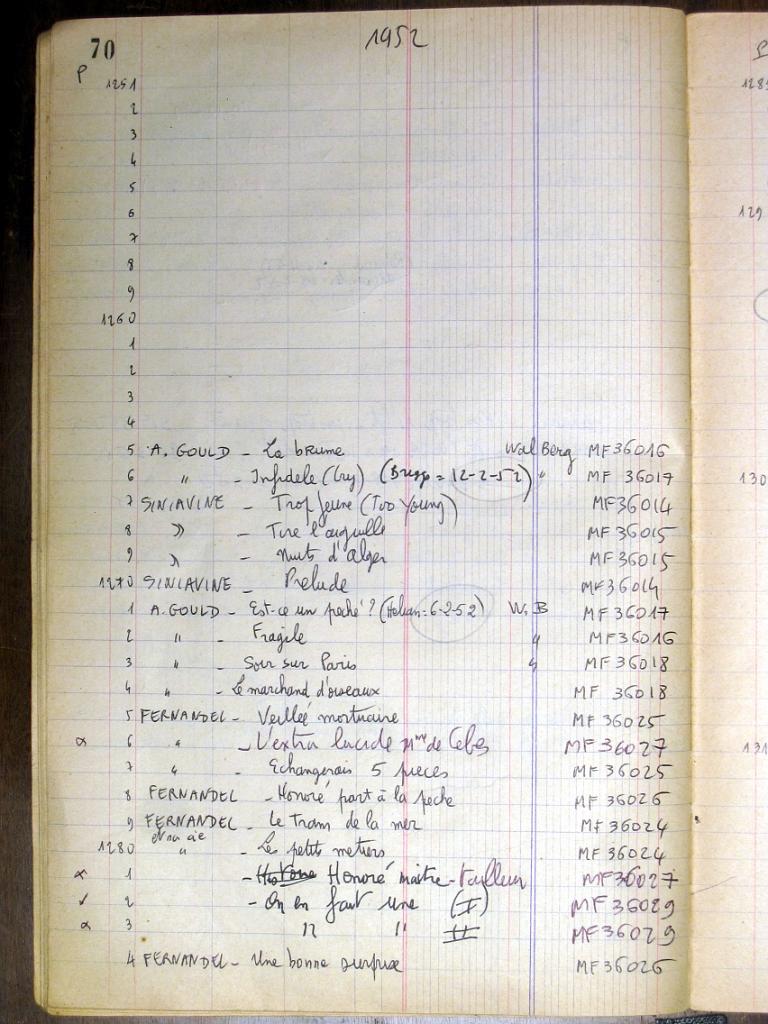 70 1952
P
1251
2
3
4
5
6
7
8
9
1260
1
2
3
4
5 A. GOULD - La brume Wal Berg MF 36016
6 " - Infidele (Cry) ( = 12-2-52) " MF 36017
7 SINIAVINE - Trop Jeune (Too Young) MF 36014
8 " - Tire l'aiguille MF 36015
9 " - Nuits d'Alger MF 36015
1270 SINIAVINE - Prelude MF 36014
1 A. GOULD - Est-ce un peché ? (Helian = 6-2-52) W. B MF 36017
2 " - Fragile " MF 36016
3 " - Soir sur Paris " MF 36018
4 " - Le marchand d'oiseaux MF 36018
5 FERNANDEL - Veillée mortuaire MF 36025
α 6 " - L'extra lucide Mme de Cebes MF 36027
7 " - Echangerais 5 pieces MF 36025
8 FERNANDEL - Honoré part à la peche MF 36026
9 FERNANDEL - Le Tram de la mer MF 36024
1280 " - Les petits metiers MF 36024
α 1 - Honoré maitre-tailleur MF 36027
✓ 2 - On en faut une (I) MF 36029
α 3 " " II MF 36029
4 FERNANDEL - Une bonne surprise MF 36026